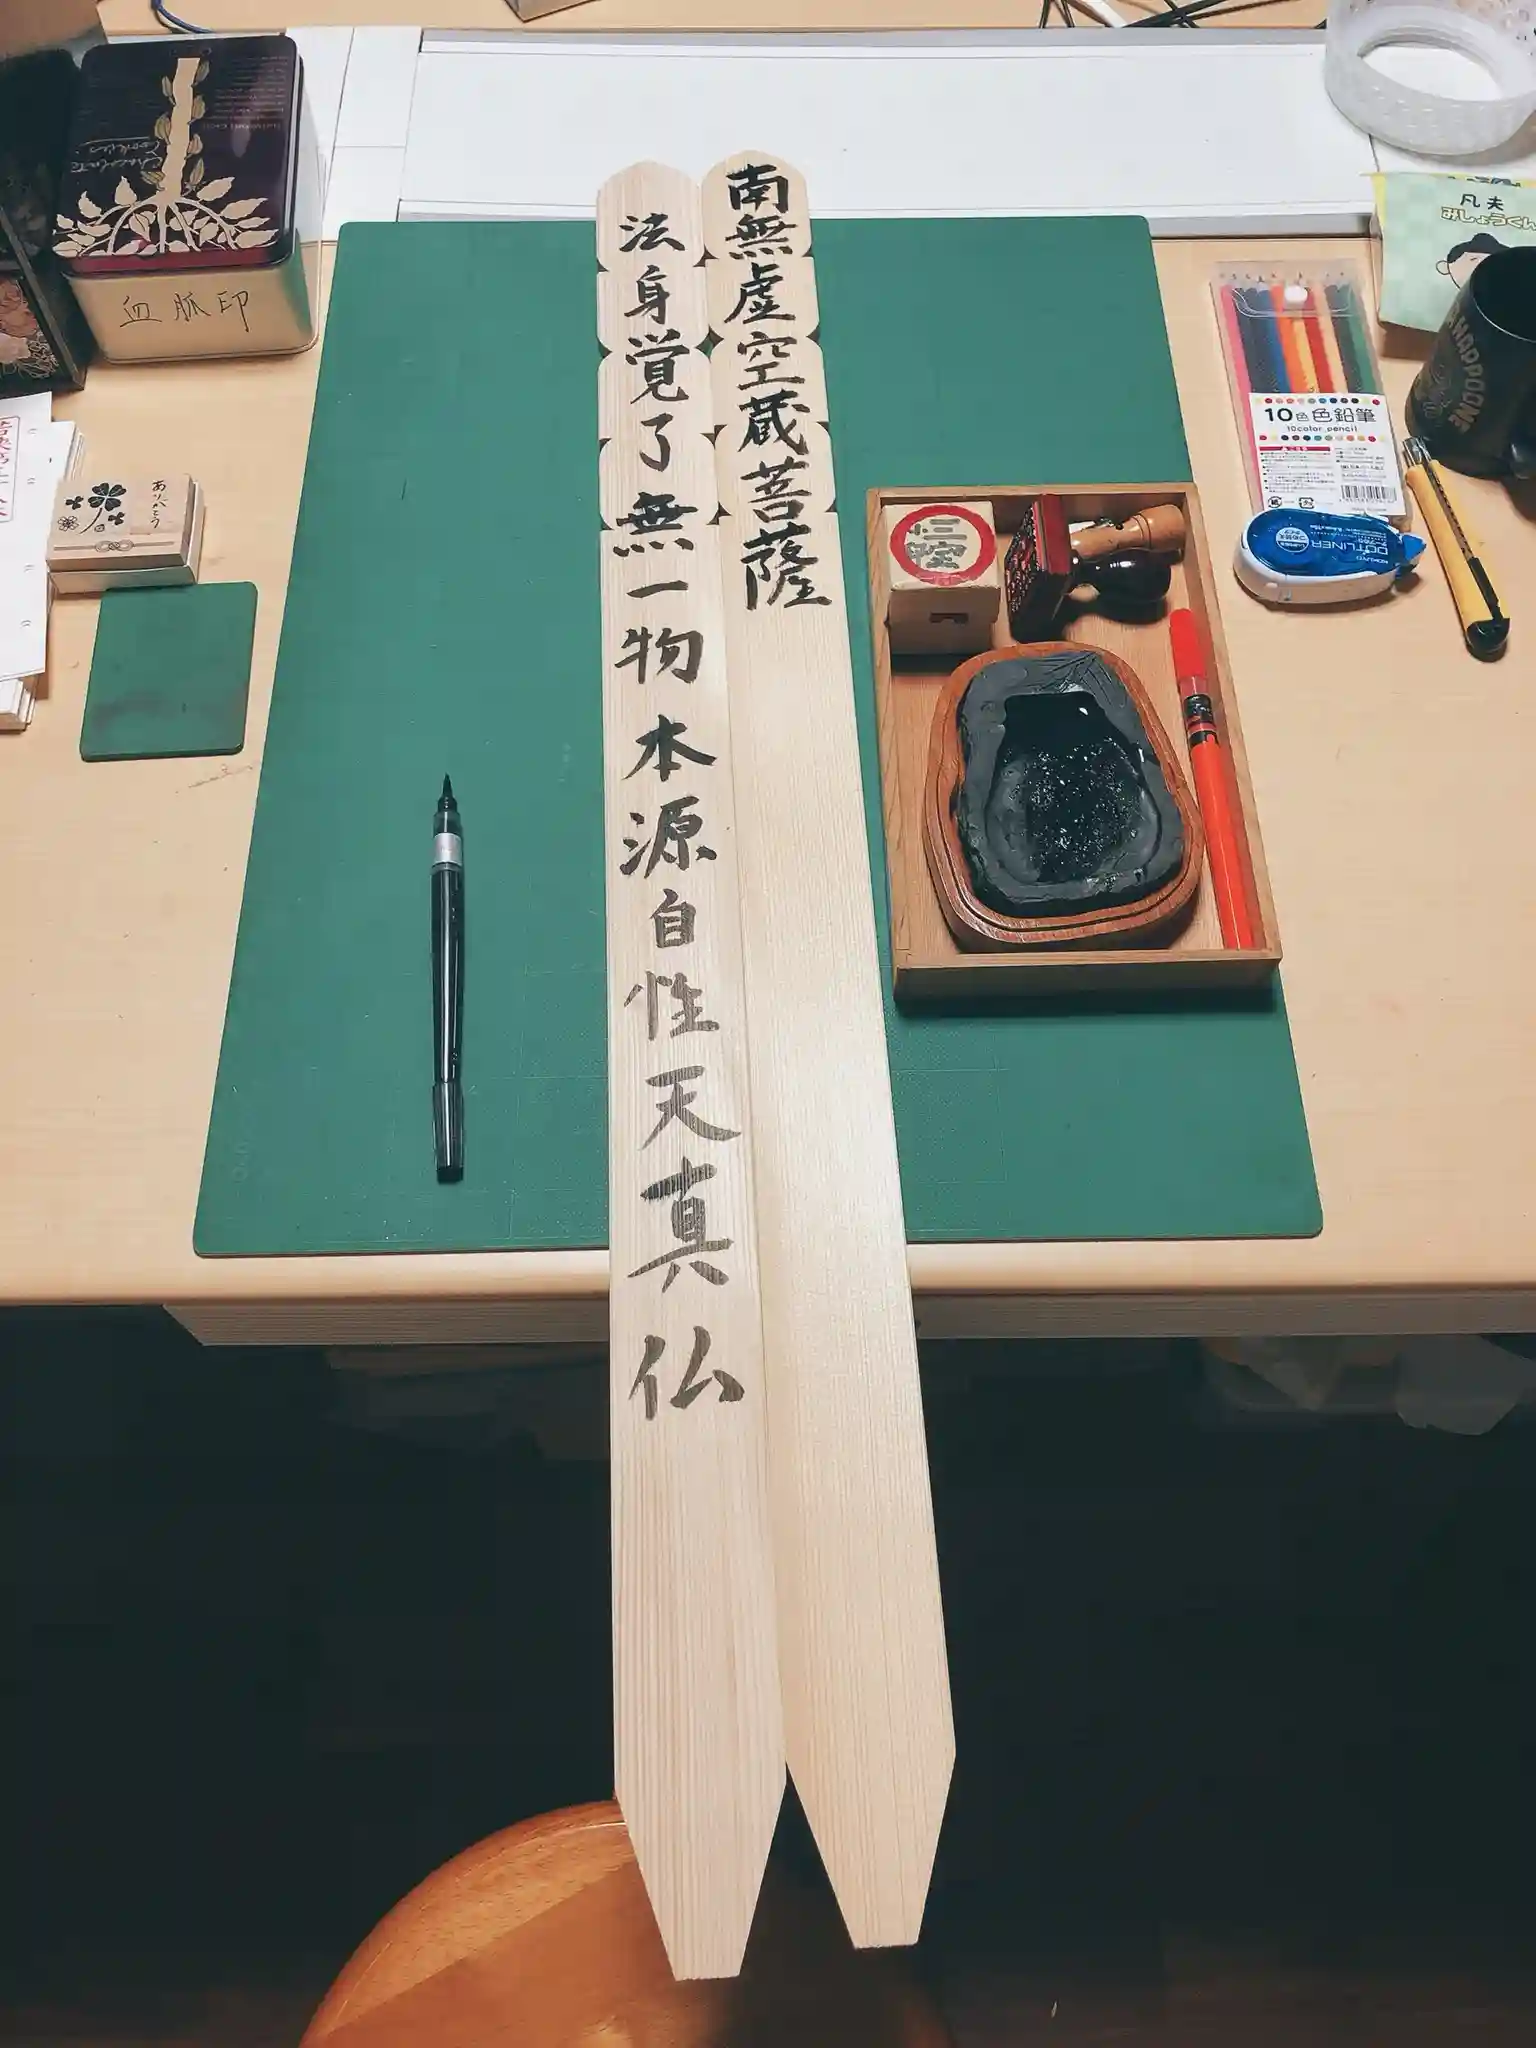 南無虚空蔵菩薩
法身覚了無一物本源自性天真仏
Chocolate
Cookies
血脈印
ありがとう
凡夫
みしょうくん
10色色鉛筆
10color pencil
DOTLINER
KOKUYO